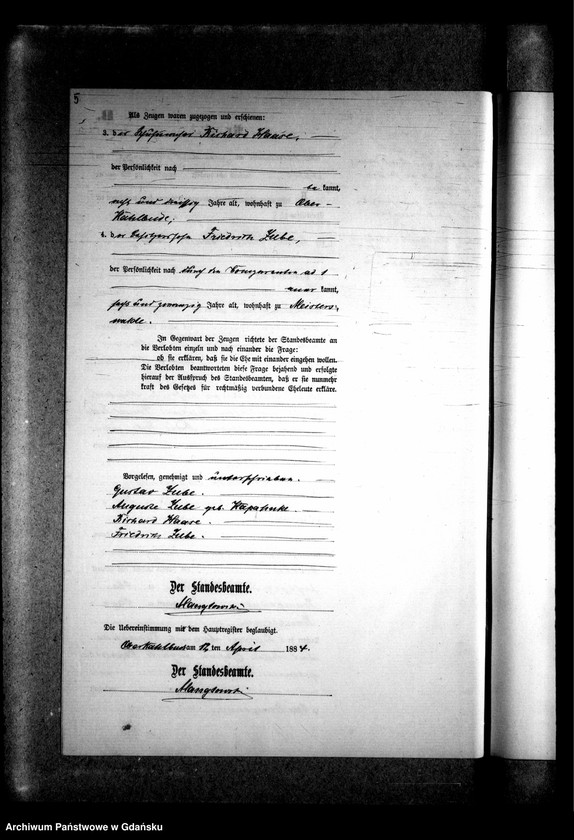 5
Als Zeugen waren zugezogen und erschienen:
3. der Richard Haase,
der Persönlichkeit nach
be kannt,
acht und dreißig Jahre alt, wohnhaft zu Ober-
Kahlbude;
4. der Friedrich Zube,
der Persönlichkeit nach durch den Comparenten ad 1
aner kannt,
sechs und zwanzig Jahre alt, wohnhaft zu Meisters-
walde.
In Gegenwart der Zeugen richtete der Standesbeamte an
die Verlobten einzeln und nach einander die Frage:
ob sie erklären, daß sie die Ehe mit einander eingehen wollen.
Die Verlobten beantworteten diese Frage bejahend und erfolgte
hierauf der Ausspruch des Standesbeamten, daß er sie nunmehr
kraft des Gesetzes für rechtmäßig verbundene Eheleute erkläre.
Vorgelesen, genehmigt und unterschrieben.
Gustav Zube.
Auguste Zube geb.
Richard Haase.
Friedrich Zube.
Der Standesbeamte.
Die Uebereinstimmung mit dem Hauptregister beglaubigt.
Oberkahlbude am 12 ten April 1884.
Der Standesbeamte.
Archiwum Państwowe w Gdańsku